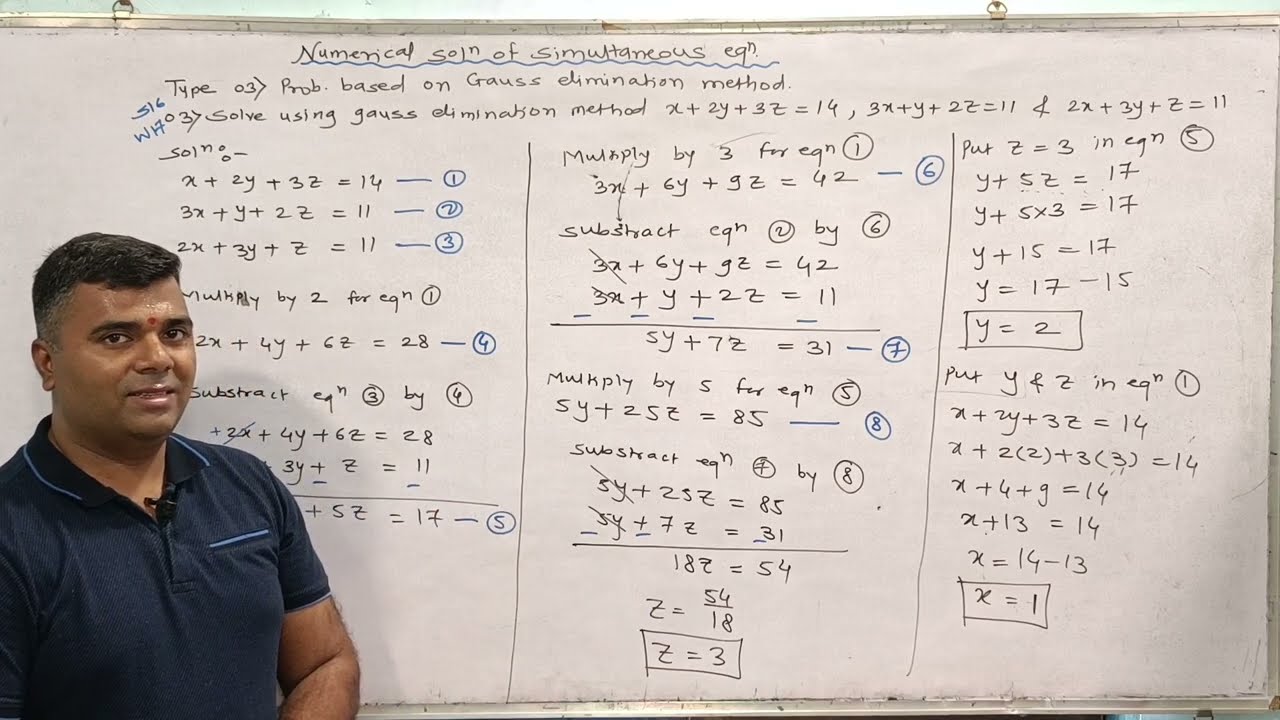 Numerical solⁿ of simultaneous eqⁿ.
Type 03> Prob. based on Gauss elimination method.
S16
W17
03> Solve using gauss elimination method x + 2y + 3z = 14, 3x+y+2z=11 & 2x+3y+z=11
Solⁿ:-
x + 2y + 3z = 14 — ①
3x + y + 2z = 11 — ②
2x + 3y + z = 11 — ③
Multiply by 2 for eqⁿ ①
2x + 4y + 6z = 28 — ④
Substract eqⁿ ③ by ④
+2x + 4y + 6z = 28
3y + z = 11
+ 5z = 17 — ⑤
Multiply by 3 for eqⁿ ①
3x + 6y + 9z = 42 — ⑥
Substract eqⁿ ② by ⑥
3x + 6y + 9z = 42
3x + y + 2z = 11
5y + 7z = 31 — ⑦
Multiply by 5 for eqⁿ ⑤
5y + 25z = 85 — ⑧
Substract eqⁿ ⑦ by ⑧
5y + 25z = 85
5y + 7z = 31
18z = 54
z = 54/18
z = 3
Put z = 3 in eqⁿ ⑤
y + 5z = 17
y + 5×3 = 17
y + 15 = 17
y = 17 - 15
y = 2
Put y & z in eqⁿ ①
x + 2y + 3z = 14
x + 2(2) + 3(3) = 14
x + 4 + 9 = 14
x + 13 = 14
x = 14 - 13
x = 1